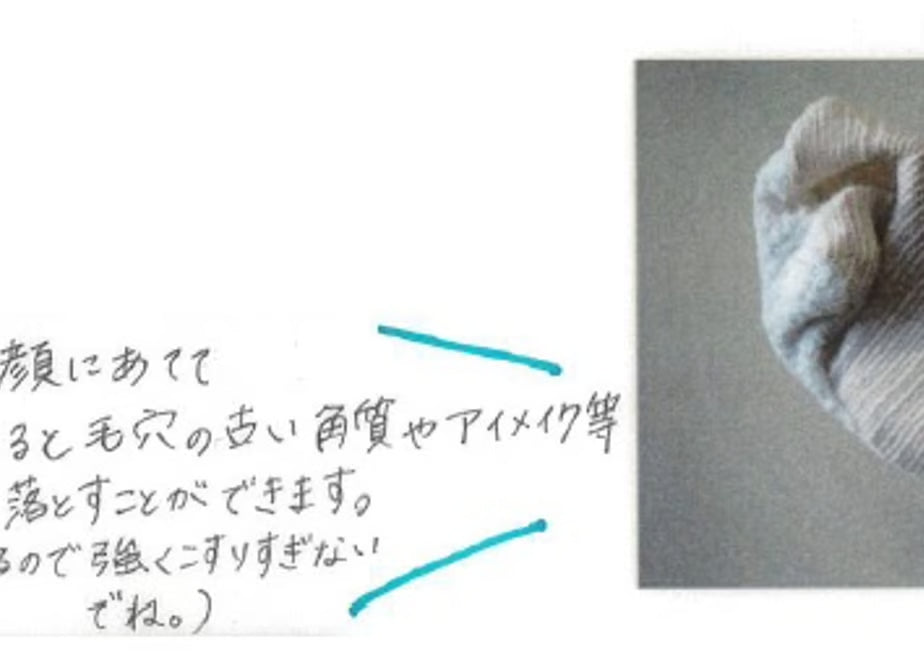 顔にあてて
ると毛穴の古い角質やアイメイク等
落とすことができます。
るので強くこすりすぎない
でね。)